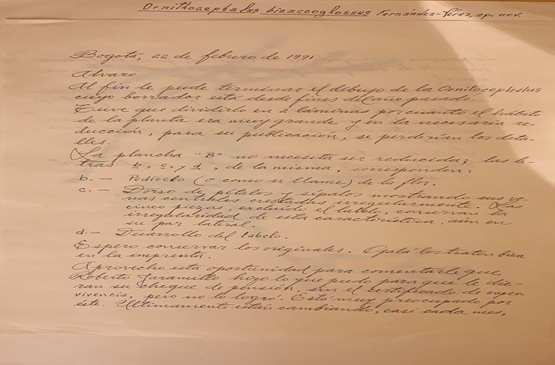 Ornithocephalus bizacroglossus Fernández-Pérez, sp. nov.
Bogotá, de febrero de 1991
Alvaro
Al fin le pude terminar el dibujo de la Ornitocephalus
cuyo borrador está desde fines del año pasado.
Tuve que dividirlo en 2 láminas por cuanto el hábito
de la planta era muy grande y en la necesaria re-
ducción, para su publicación, se perderían los deta-
lles.
La plancha "B" no necesita ser reducida; las le-
tras b, c, y d, de la misma, corresponden:
b.— Pedicelo (o como se llame) de la flor.
c.— Dorso de pétalos y sépalos mostrando sus
nas centrales crestadas irregularmente. Las
cinco piezas, incluído el labelo, conservan la
irregularidad de esta característica, aún en
su par lateral.
d.— Desarrollo del labelo.
Espero conservar los originales. Ojalá los traten bien
en la imprenta.
Aprovecho esta oportunidad para comentarle que
Roberto Jaramillo hizo lo que pudo para que le die-
ran su cheque de pensión, sin el certificado de super
vivencia, pero no lo logró. Está muy preocupado por
éste. Ultimamente están cambiando, casi cada mes,